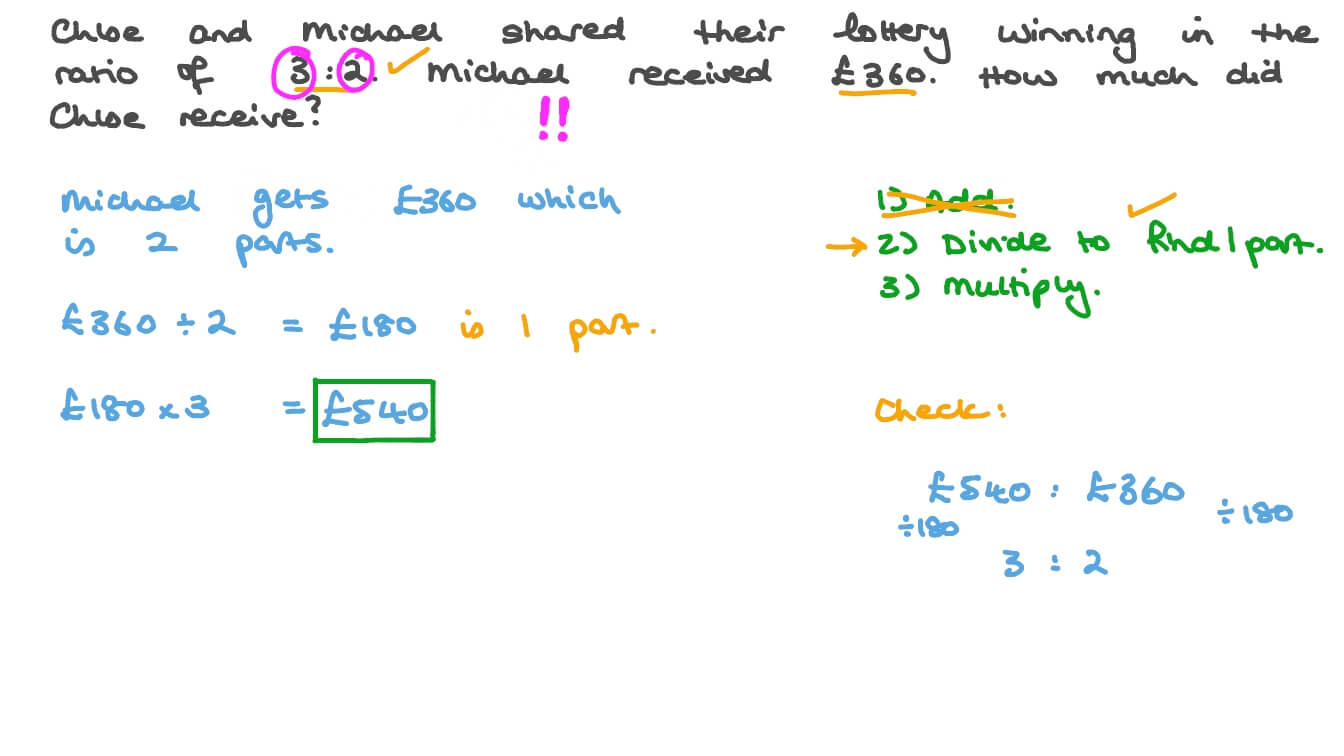 Chloe and Michael shared their lottery winning in the
ratio of 3:2. Michael received £360. How much did
Chloe receive?
!!
Michael gets £360 which
is 2 parts.
£360 ÷ 2 = £180 is 1 part.
£180 x 3 = £540
1) Add.
→ 2) Divide to find 1 part.
3) Multiply.
Check:
£540 : £360
÷180 ÷180
3 : 2